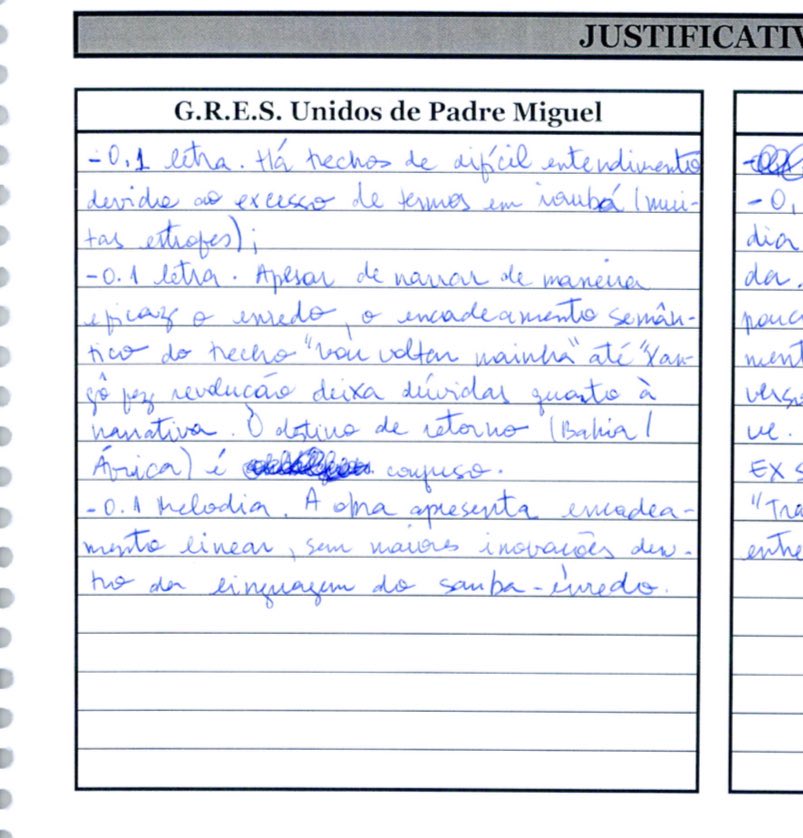 JUSTIFICATIV
G.R.E.S. Unidos de Padre Miguel
-0.1 letra. Há trechos de difícil entendimento
devido ao excesso de termos em iorubá (mui-
tas estrofes);
-0.1 letra. Apesar de narrar de maneira
eficaz o enredo, o encadeamento semân-
tico do trecho "vou voltar mainha" até "Xan-
gô fez revolução deixa dúvidas quanto à
narrativa. O destino de retorno (Bahia/
África) é confuso.
-0.1 Melodia. A obra apresenta encadea-
mento linear, sem maiores inovações den-
tro da linguagem do samba-enredo.
-0,
dia
da.
pouc
ment
verso
ve.
EX S
"Tra
entre